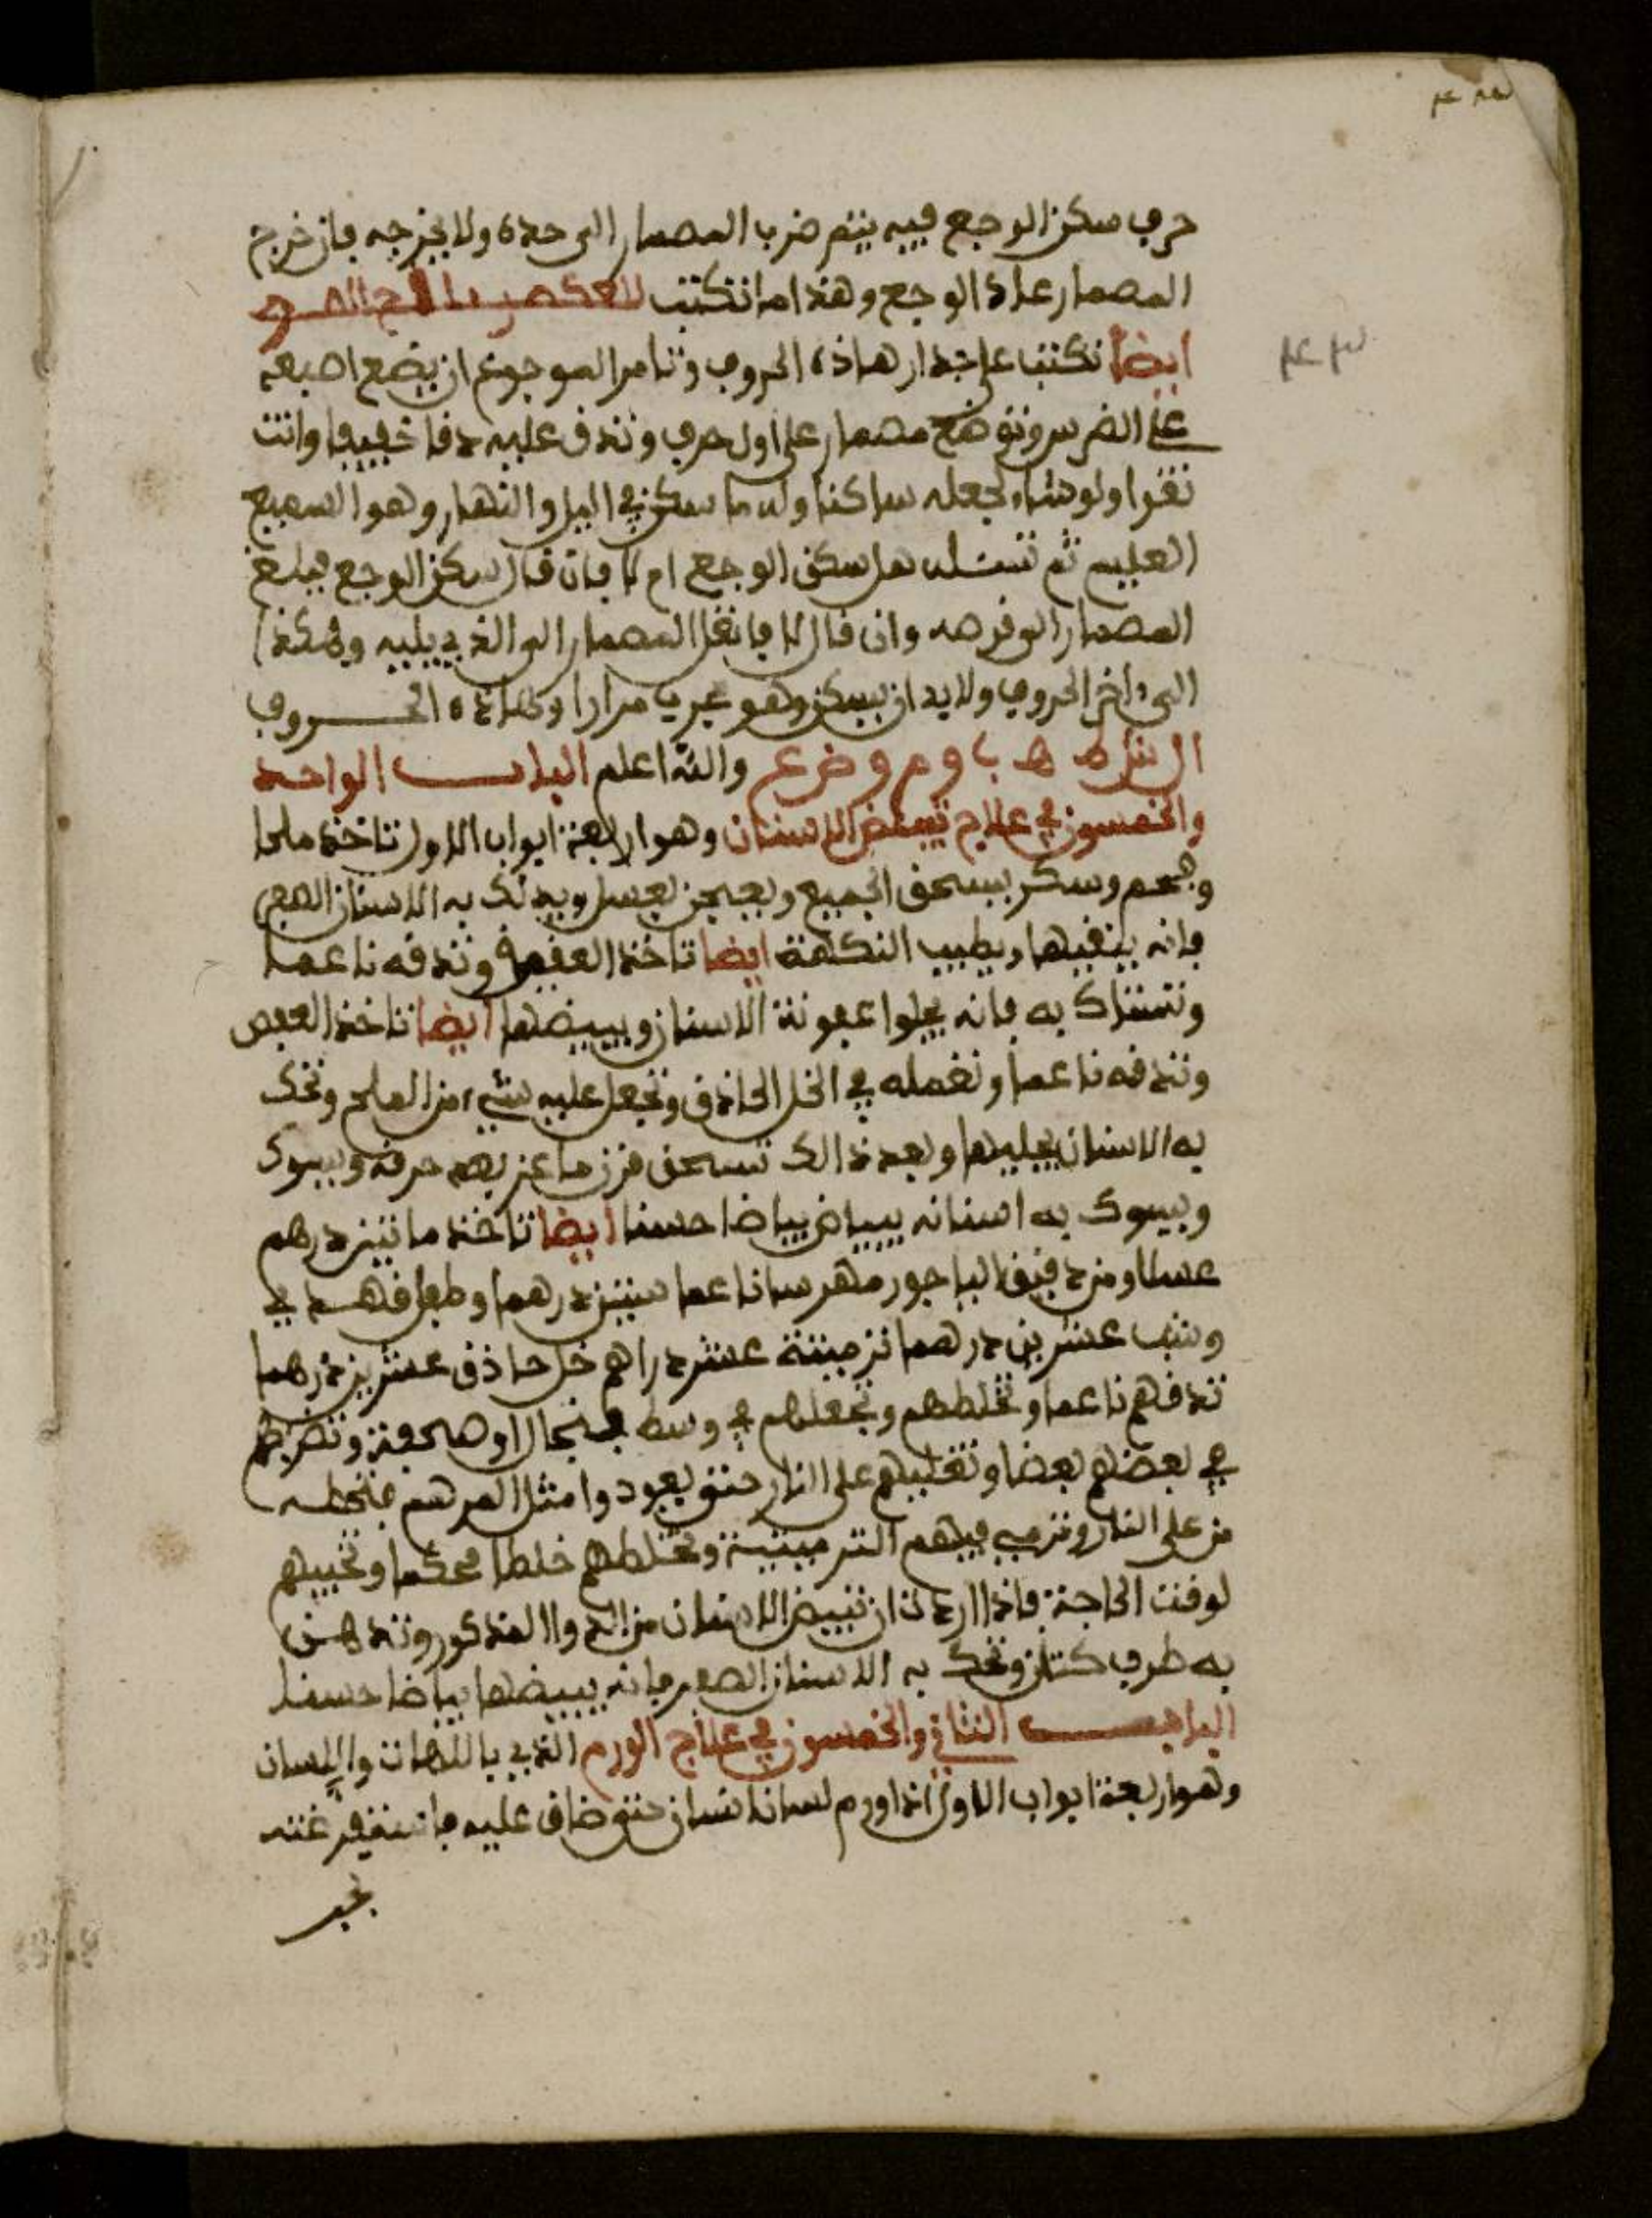 حرف سكن الوجع فيه يتم ضرب المصمار الى حده ولا يخرجه فان خرج
المصمار عاد الوجع وهذا ما تكتب
ايضا تكتب على جدار هاذه الحروف وتامر الموجوع ان يضع اصبعه
على الضرس وتوضع مصمار على اول حرف وتدق عليه دقا خفيفا وانت
تقرا ولو شاء لجعله ساكنا وله ما سكن في اليل والنهار وهو السميع
العليم ثم تسئله هل سكن الوجع ام لا فان قال سكن الوجع فبلغ
المصمار الى قرصه وان قال لا فانقل المصمار الى الذي يليه وهكذا
الى ءاخر الحروف ولابد ان يسكن وهو مجرب مرارا وهاذه الحروف
والله اعلم الباب الواحد
والخمسون في علاج تبييض الاسنان وهو اربعة ابواب الاول تاخذ ملحا
وفحم وسكر يسحق الجميع ويعجن بعسل ويدلك به الاسنان الصفر
فانه ينقيها ويطيب النكهة ايضا تاخذ العقيق وتدقه ناعما
وتستاك به فانه يجلوا عفونة الاسنان ويبيضها ايضا تاخذ العفص
وتدقه ناعما وتغمله في الخل الحاذق وتجعل عليه شيء من الملح وتحك
به الاسنان يجليها وبعد ذالك تسحق قرن ماعز بعد حرقه ويسوك
ويسوك به اسنانه يبياض بياضا حسنا ايضا تاخذ مائتين درهم
عسلا ومن دقيق الياجور مهرسا ناعما ستين درهما
وشب عشرين درهما ترمينتة عشر دراهم خل حاذق عشرين درهما
تدقهم ناعما وتخلطهم وتجعلهم في وسط فنجال او صحفة وتضربهم
في بعضهم بعضا وتغليهم على النار حتى يعودوا مثل المرهم فتحطه
من على النار وترمي فيهم الترمينتية وتخلطهم خلطا محكما وتخبيهم
لوقت الحاجة فاذا اردت ان تبييض الاسنان من الدوا المذكور وتدهن
به طرف كتان وتحك به الاسنان الصفر فانه يبيضها بياضا حسنا
الباب الثاني والخمسون في علاج الورم الذي باللهات واللسان
وهو اربعة ابواب الاول اذا ورم لسان انسان حتى ضاق عليه فاستفرغته